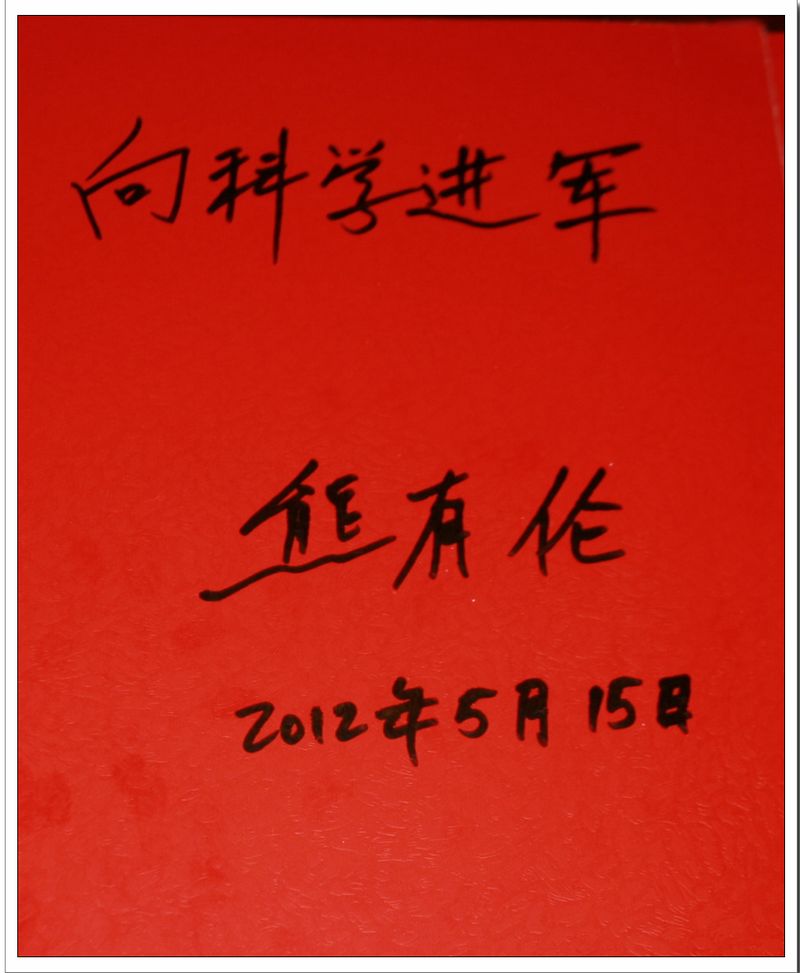 向科学进军
熊有伦
2012年5月15日